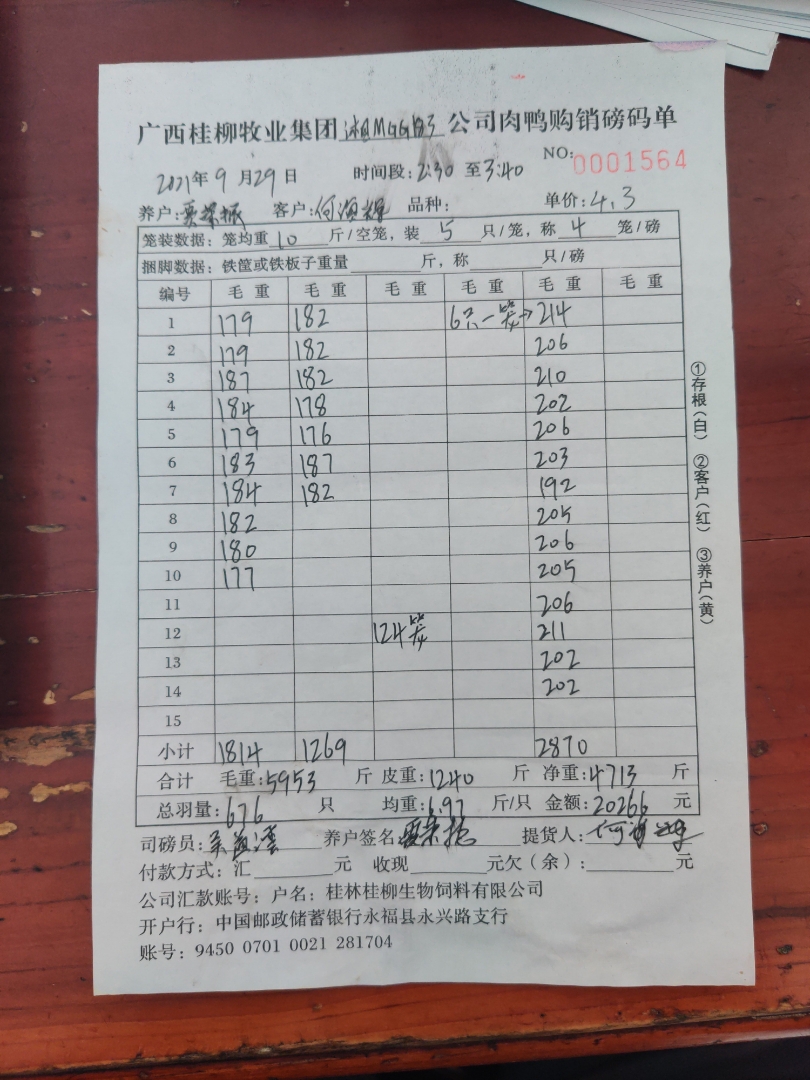 广西桂柳牧业集团 湘MGG183 公司肉鸭购销磅码单
NO: 0001564
2021年 9 月 29 日 时间段: 2:30 至 3:40
养户: 客户: 何 品种: 单价: 4.3
笼装数据: 笼均重 10 斤/空笼, 装 5 只/笼, 称 4 笼/磅
捆脚数据: 铁筐或铁板子重量 斤, 称 只/磅
编号 毛 重 毛 重 毛 重 毛 重 毛 重 毛 重
1 179 182 6只一笼→214
2 179 182 206
3 187 182 210
4 184 178 202
5 179 176 206
6 183 187 203
7 184 182 192
8 182 205
9 180 206
10 177 205
11 206
12 124笼 211
13 202
14 202
15
小计 1814 1269 2870
合计 毛重: 5953 斤 皮重: 1240 斤 净重: 4713 斤
总羽量: 676 只 均重: 6.97 斤/只 金额: 20266 元
司磅员: 养户签名: 提货人:
付款方式: 汇 元 收现 元欠(余): 元
公司汇款账号: 户名: 桂林桂柳生物饲料有限公司
开户行: 中国邮政储蓄银行永福县永兴路支行
账号: 9450 0701 0021 281704
①存根(白) ②客户(红) ③养户(黄)